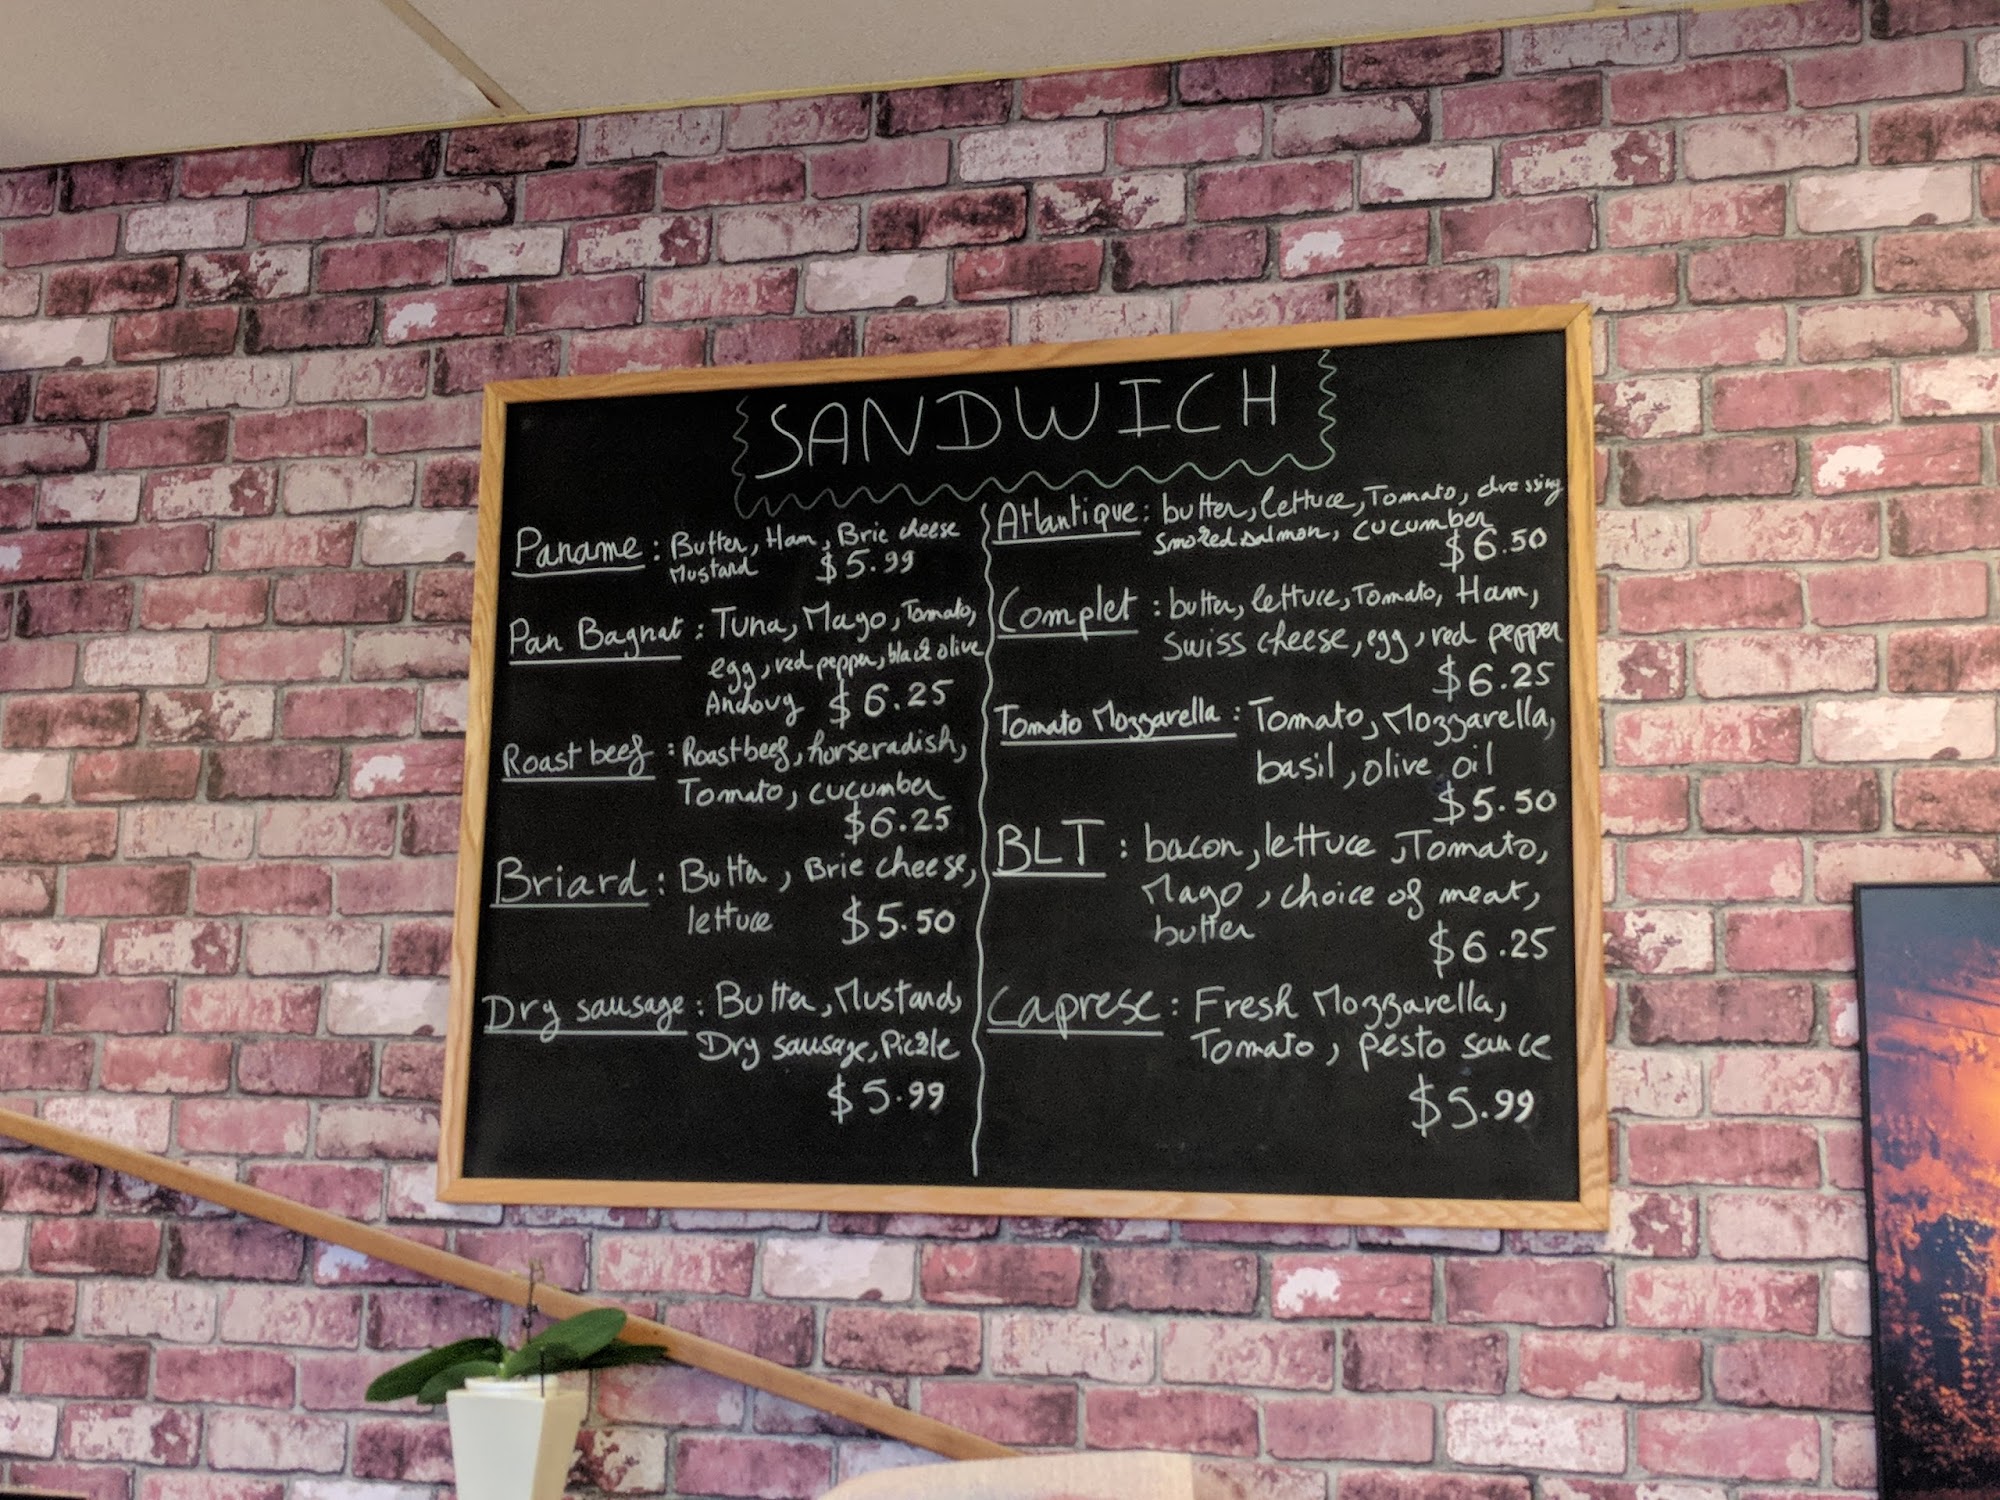 SANDWICH
Paname : Butter, Ham, Brie cheese
Mustard $5.99
Pan Bagnat : Tuna, Mayo, Tomato,
egg, red pepper, black olive
Anchovy $6.25
Roast beef : Roastbeef, horseradish,
Tomato, cucumber
$6.25
Briard : Butter, Brie cheese,
lettuce $5.50
Dry sausage : Butter, Mustard,
Dry sausage, Pickle
$5.99
Atlantique : butter, lettuce, Tomato, dressing
smoked salmon, cucumber
$6.50
Complet : butter, lettuce, Tomato, Ham,
Swiss cheese, egg, red pepper
$6.25
Tomato Mozzarella : Tomato, Mozzarella,
basil, olive oil
$5.50
BLT : bacon, lettuce, Tomato,
Mayo, choice of meat,
butter
$6.25
Caprese : Fresh Mozzarella,
Tomato, pesto sauce
$5.99